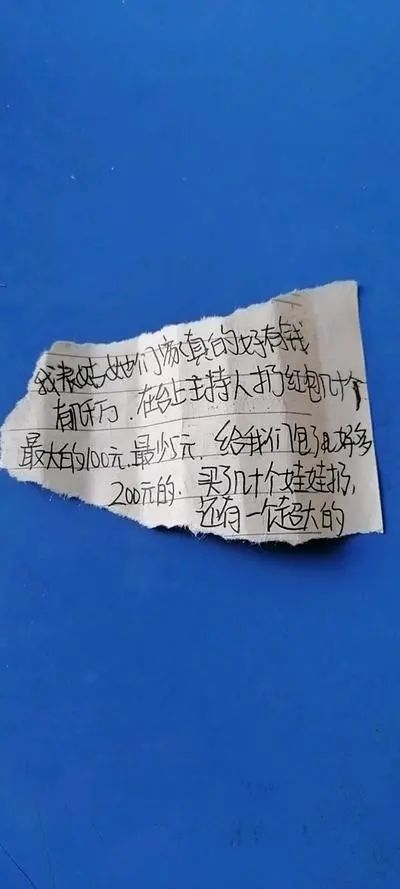 我表姑她们家真的好有钱
有几千万,在台上主持人扔红包几十个
最大的100元.最少5元,给我们包了好多
200元的.买了几十个娃娃扔,
还有一个超大的